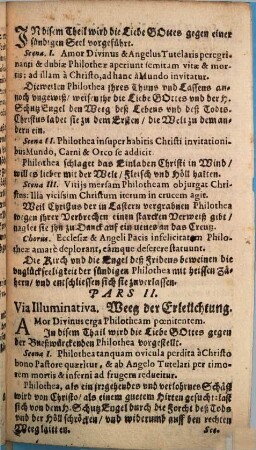 INdisem Theil wird die Liebe GOttes gegen einer
sündigen Seel vorgeführt.
Scena I. Amor Divinus & Angelus Tutelaris peregri-
nanti & dubiæ Philotheæ aperiunt semitam vitæ & mor-
tis; ad illam à Christo, ad hanc à Mundo invitatur.
Dieweilen Philothea ihres Thuns und Lassens an-
noch ungewiß / weisen ihr die Liebe GOttes und der H.
Schutz-Engel den Weeg deß Lebens und deß Todts.
Christus ladet sie zu dem Ersten / die Welt zu dem an-
dern ein.
Scena II. Philothea insuper habitis Christi invitationi-
bus Mundo, Carni & Orco se addicit.
Philothea schlaget das Einladen Christi in Wind /
will es lieber mit der Welt / Fleisch und Höll halten.
Scena III. Vitijs mersam Philotheam objurgat Chri-
stus: Illa vicissim Christum iterum in crucem agit.
Weil Christus der in Lastern vergrabnen Philothea
wegen ihrer Verbrechen einen starcken Verweiß gibt /
nagles sie ihn zu Danck auf ein neues an das Creutz.
Chorus. Ecclesiæ & Angeli Pacis infelicitatem Philo-
theæ amarè deplorant, eámque deserere statuunt.
Die Kirch und die Engel deß Fridens beweinen die
unglückseeligkeit der sündigen Philothea mit heissen Zä-
hern / und entschliessen sich sie zuverlassen.
PARS II.
Via Illuminativa, Weeg der Erleüchtung.
AMor Divinus erga Philotheam pœnitentem.
In disem Theil wird die Liebe GOttes gegen
der Bueßwürckenden Philothea vorgestellt.
Scena I. Philothea tanquam ovicula perdita à Christo
bono Pastore quæritur, & ab Angelo Tutelari per timo-
rem mortis & inferni ad frugem reducitur.
Philothea, als ein irrgehendes und verlohrnes Schäfl
wird von Christo / als einem guetem Hirten gesucht: last
sich von dem H. Schutz Engel durch die Forcht deß Tods
und der Höll schröcken / und widerumb auff den rechten
Weeg laitten. Sce.